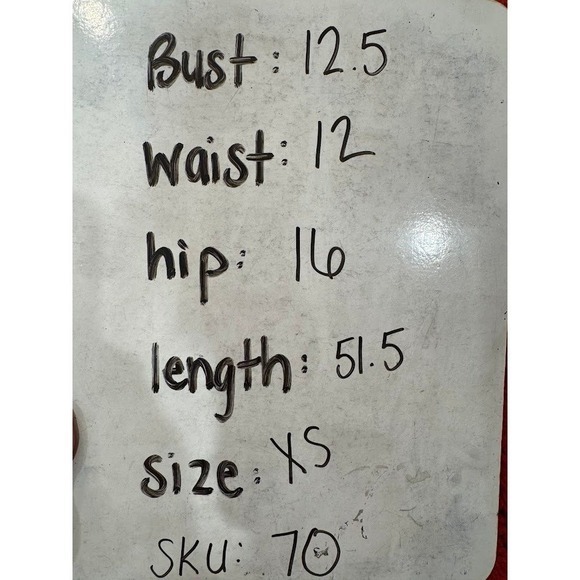 Bust: 12.5
Waist: 12
hip: 16
length: 51.5
size: XS
SKU: 70